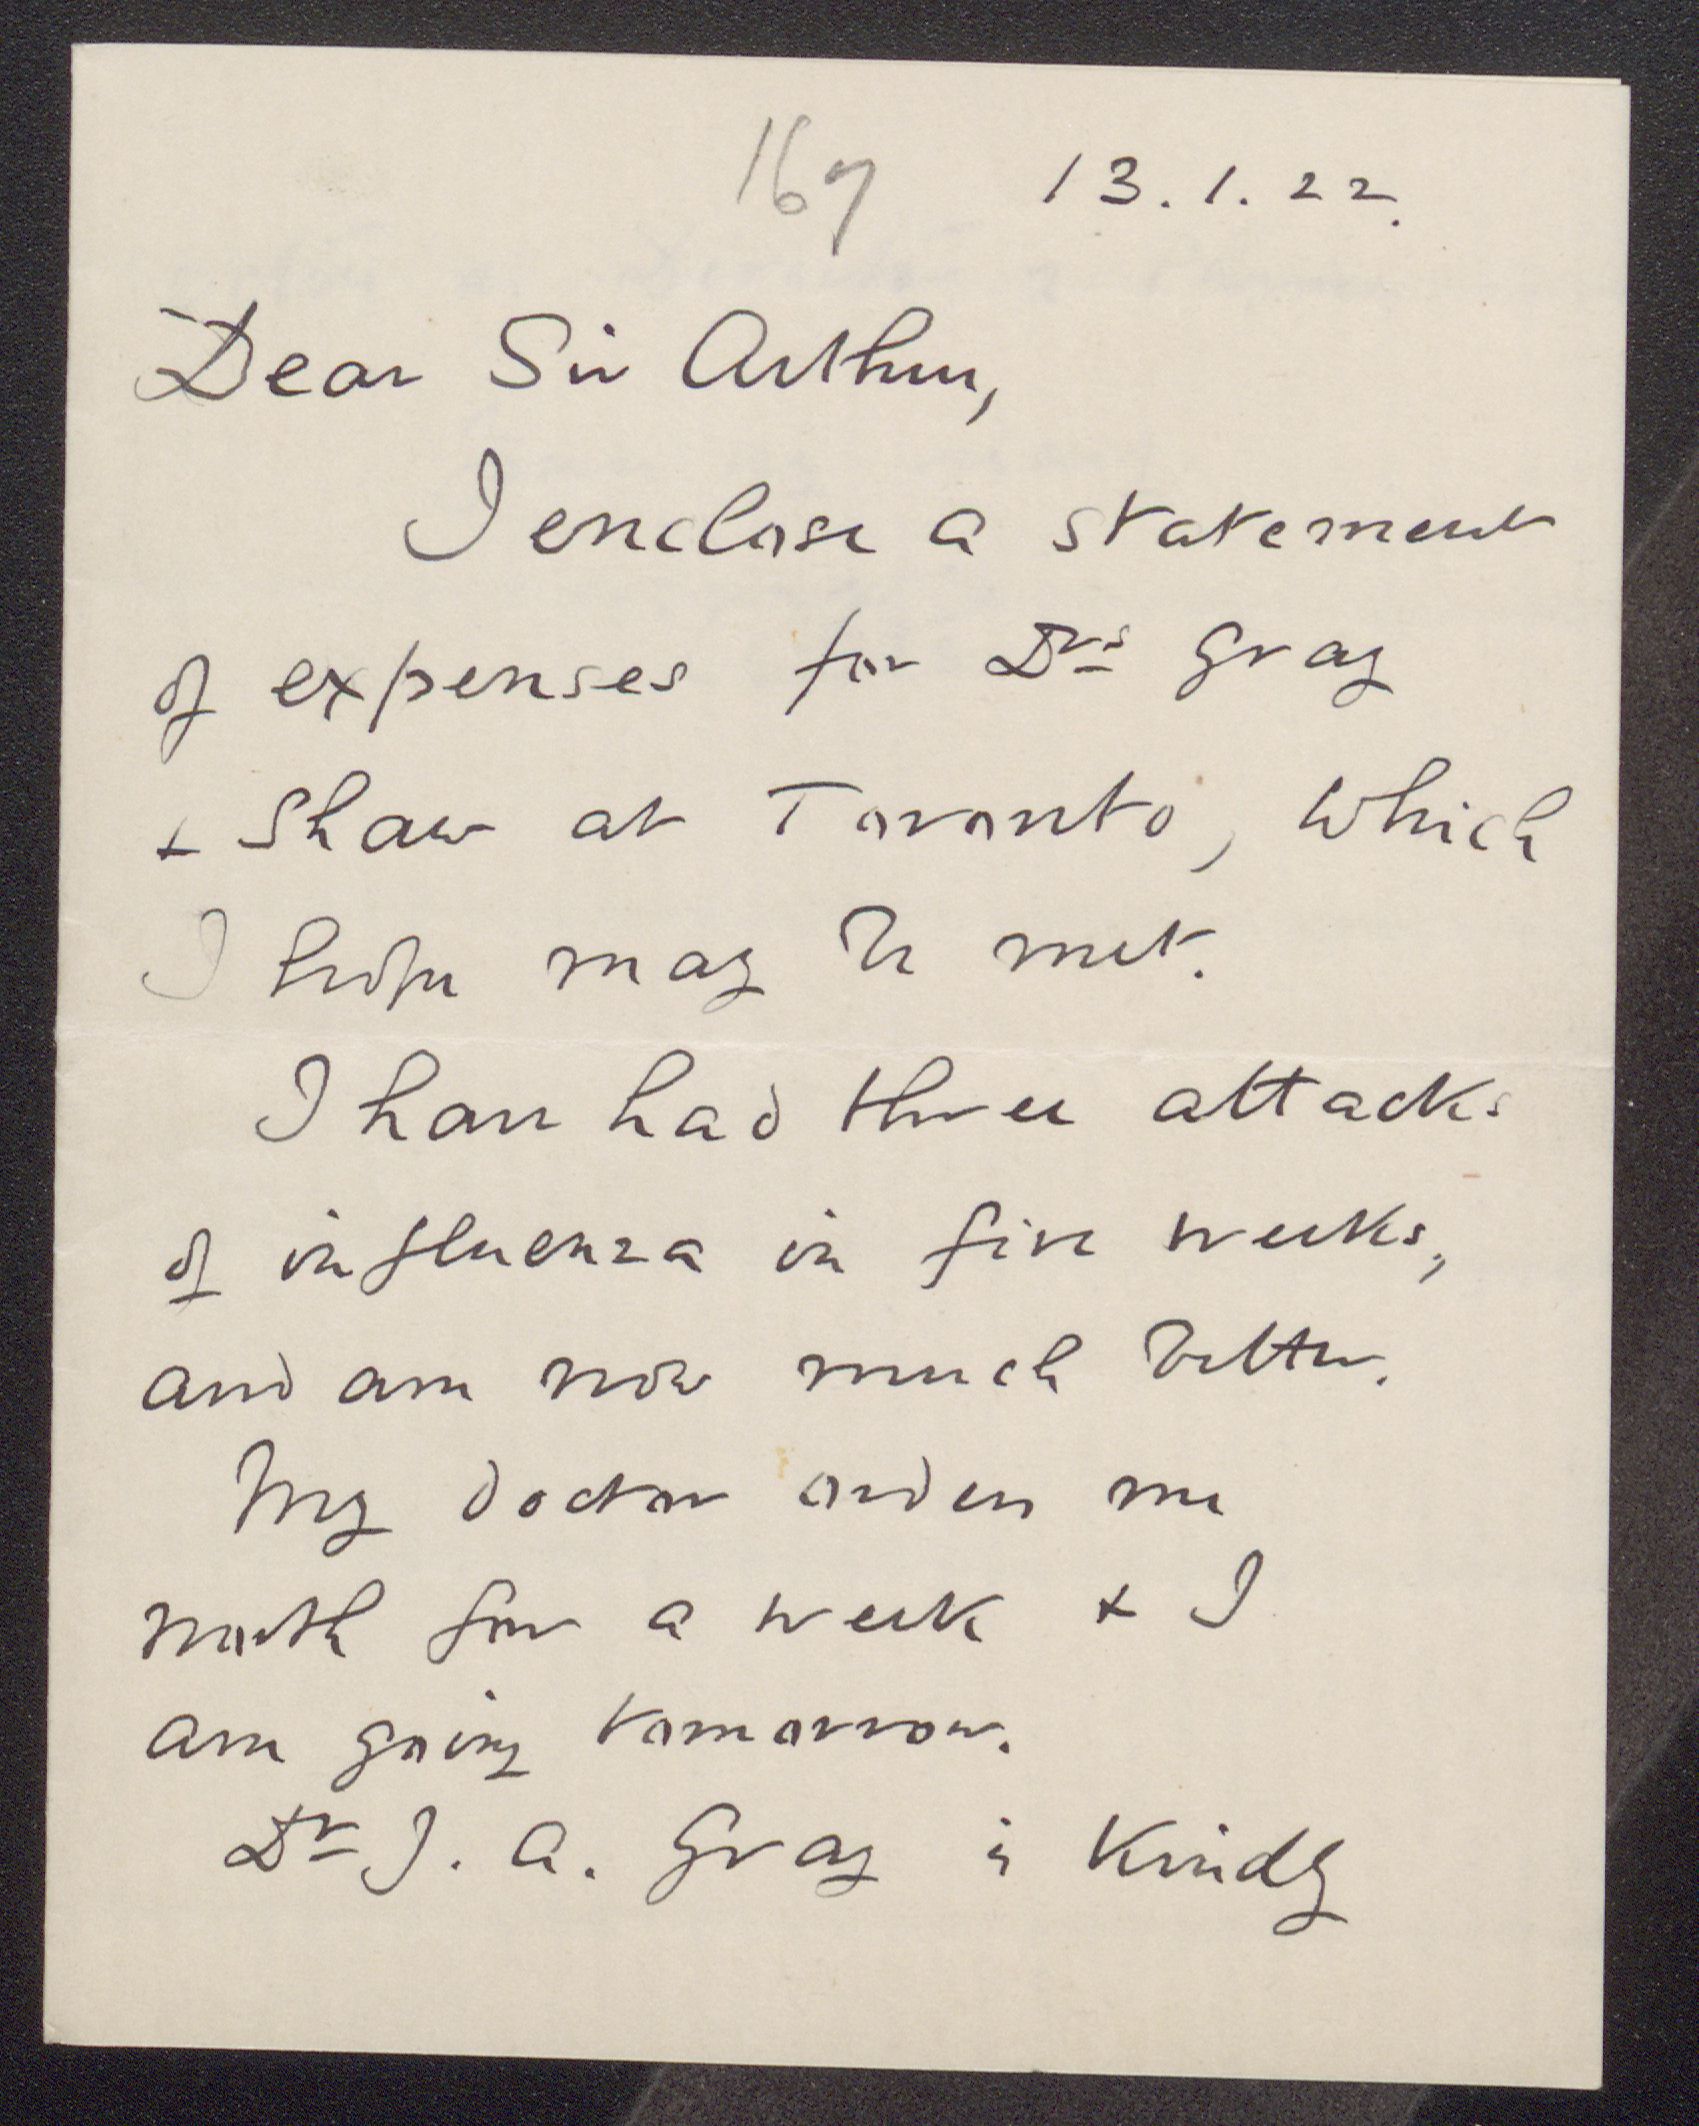 167 13.1.22.
Dear Sir Arthur,
I enclose a statement
of expenses for Drs Gray
& Shaw at Toronto, which
I hope may be met.
I have had three attacks
of influenza in five weeks,
and am now much better.
My doctor orders me
north for a week & I
am going tomorrow.
Dr J. A. Gray is kindly